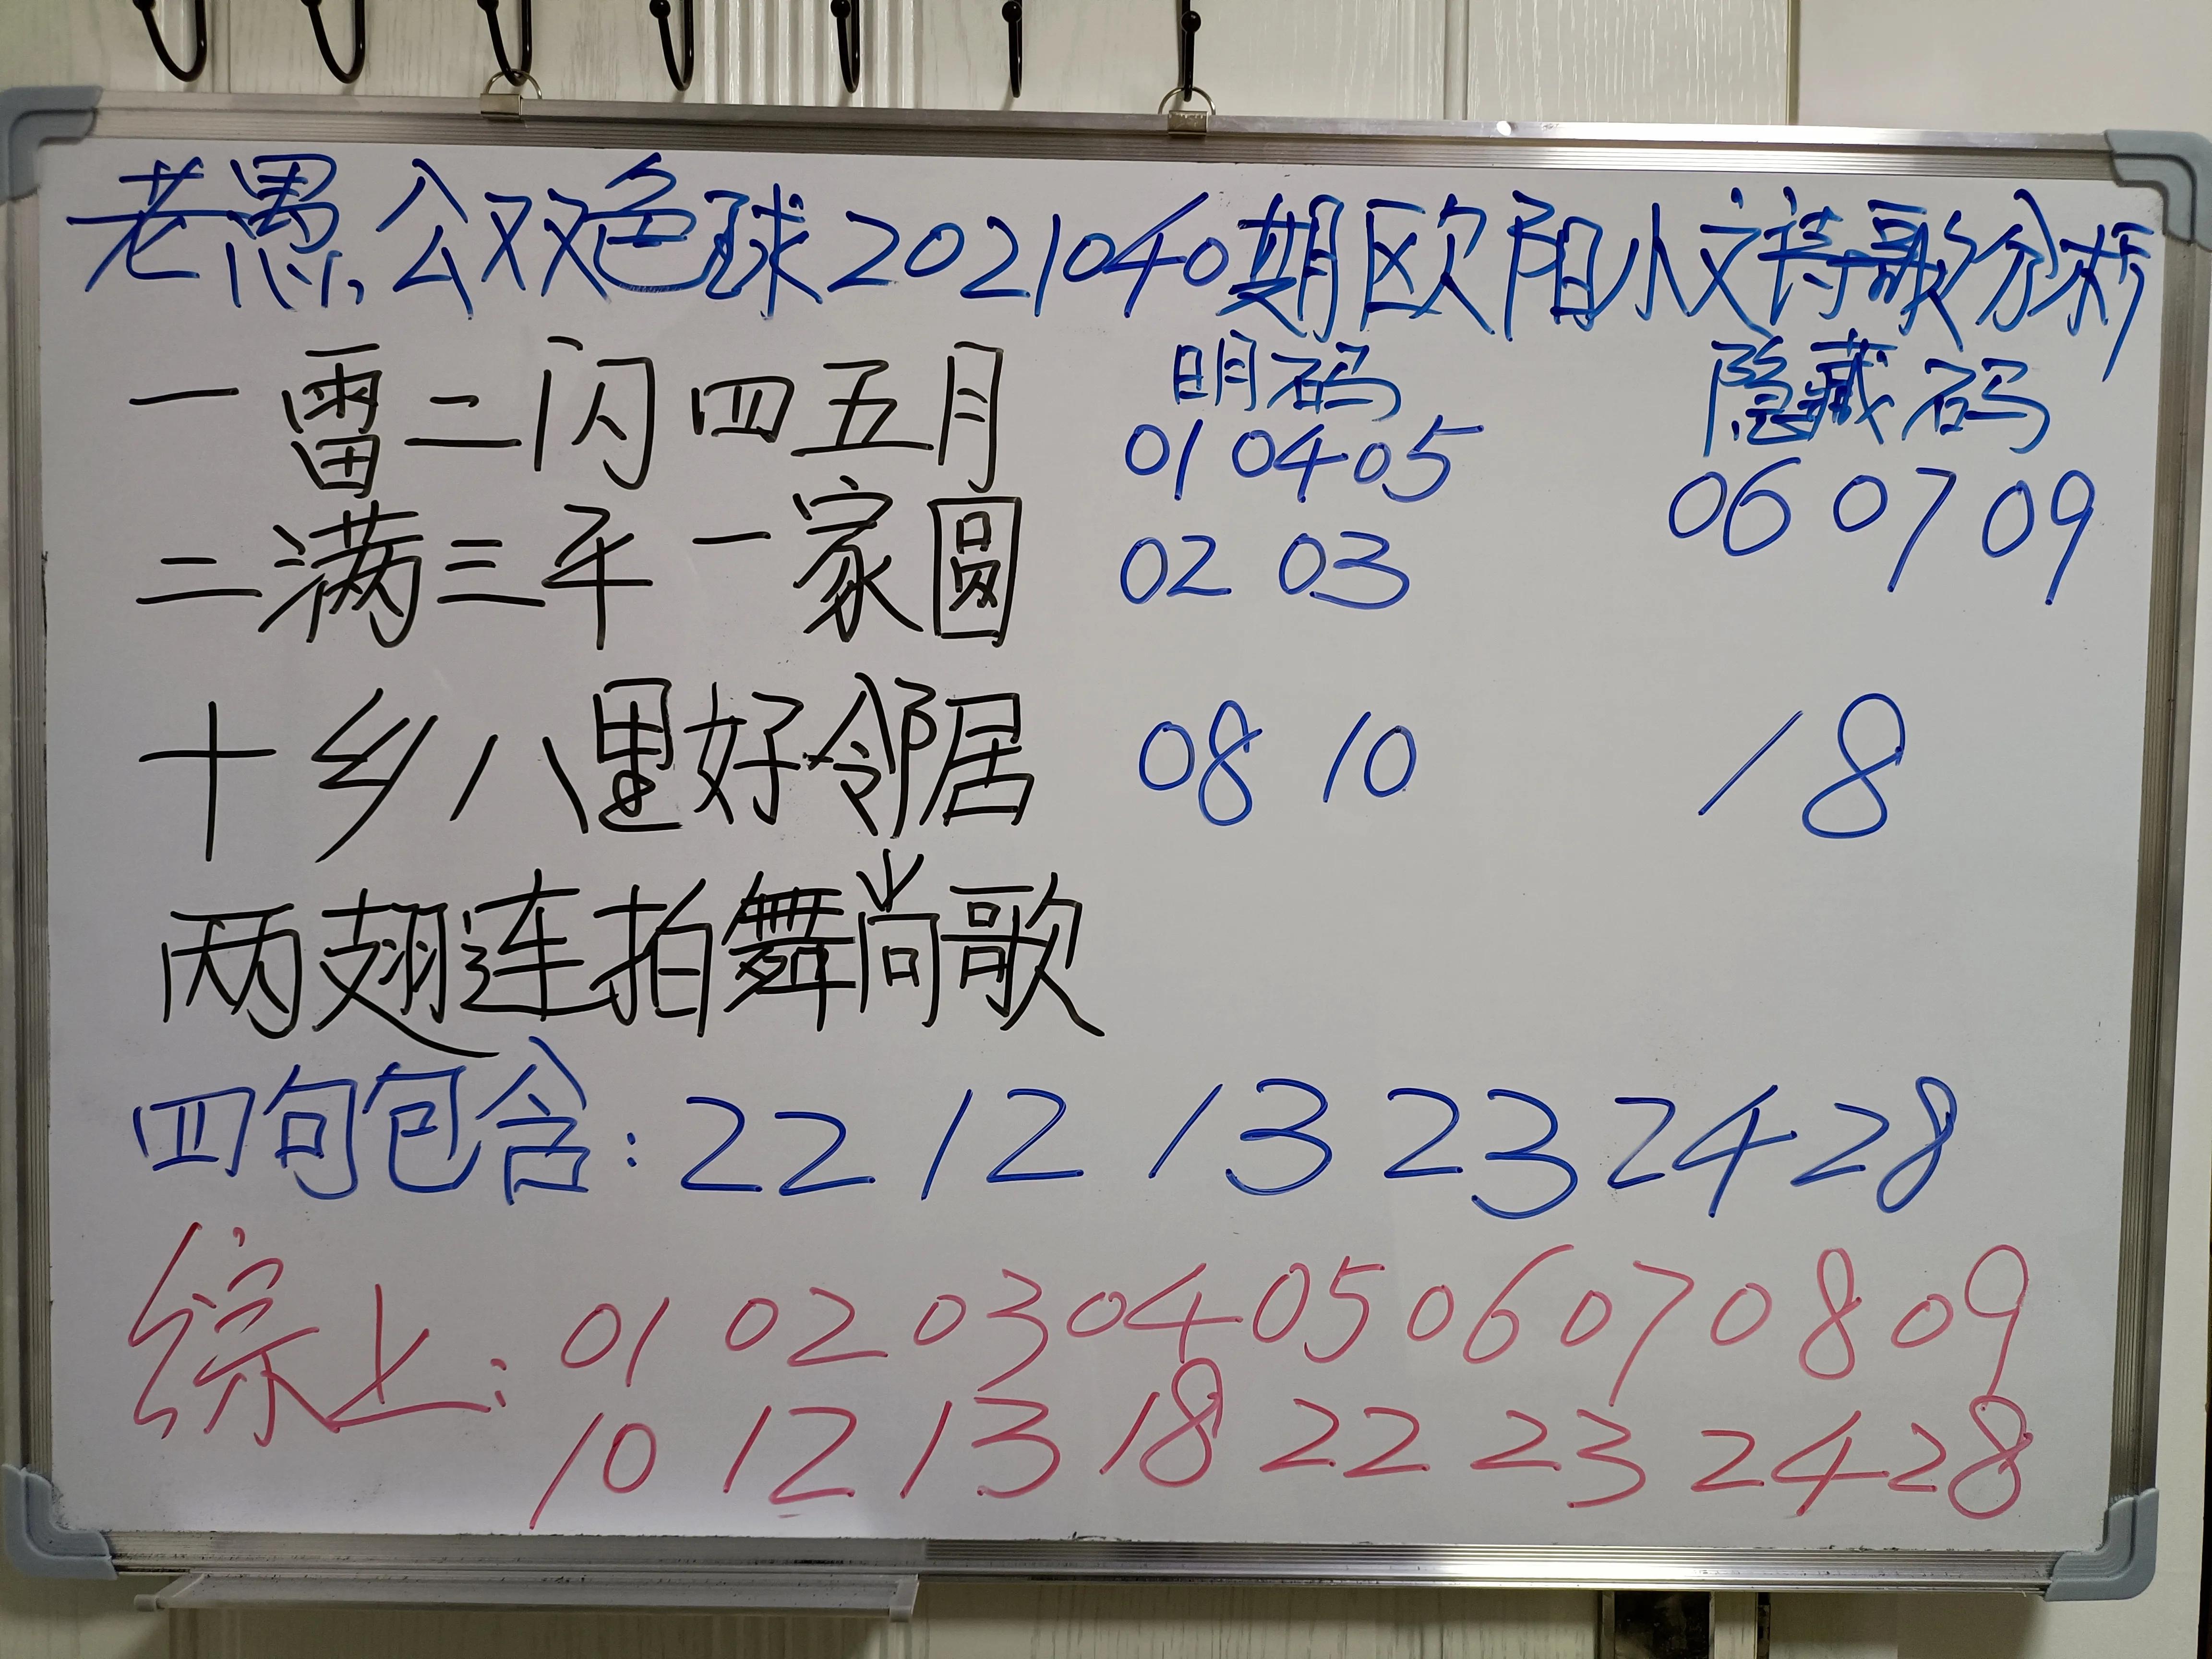 老愚公双色球2021040期欧阳小文诗歌分析
明码 隐藏码
一雷二闪四五月 01 04 05 06 07 09
二满三平一家圆 02 03
十乡八里好邻居 08 10 18
两翅连拍舞尚歌
四句包含：22 12 13 23 24 28
综上：01 02 03 04 05 06 07 08 09
10 12 13 18 22 23 24 28